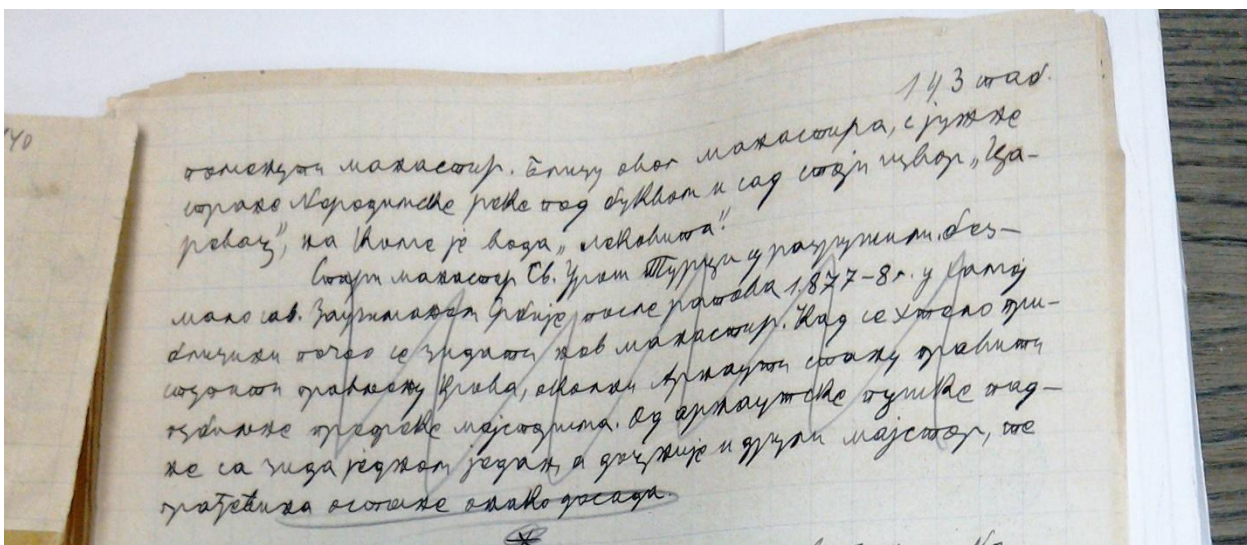 140
143 таб.
поменути манастир. Близу овог манастира, с јужне
стране Неродимске реке под буквом и сад стоји извор „Ца-
ревац", на коме је вода „лековита".
Стари манастир Св. Урош Турци су разружили без-
мало сав. Заузимањем Србије после ратова 1877-8 г. у самој
близини почео се зидати нов манастир. Кад се хтело при-
ступити прављењу крова, околни Арнаути стану правити
озбиљне препреке мајсторима. Од арнаутске пушке пад-
не са зида једном један, а доцније и други мајстор, те
грађевина остане онако досада.